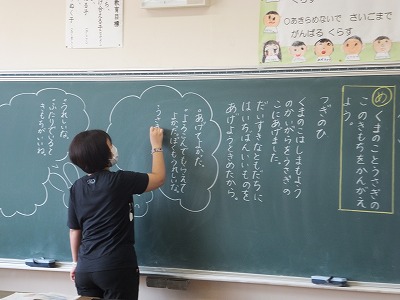 教育目標
○あきらめないで さいごまで
がんばる くらす
め くまのことうさぎの
このきもちをかんがえ
よう。
つぎのひ
くまのこはしまもよう
のかいがらをうさぎの
こにあげました。
だいすきなともだちに
はいちばんいいものを
あげようときめたから。
"あげてよかった。
"よろこんでもらえて
よかった。ぼくもうれしいな。
"うれしいな。
"ふたりでいると
きもちがいいね。